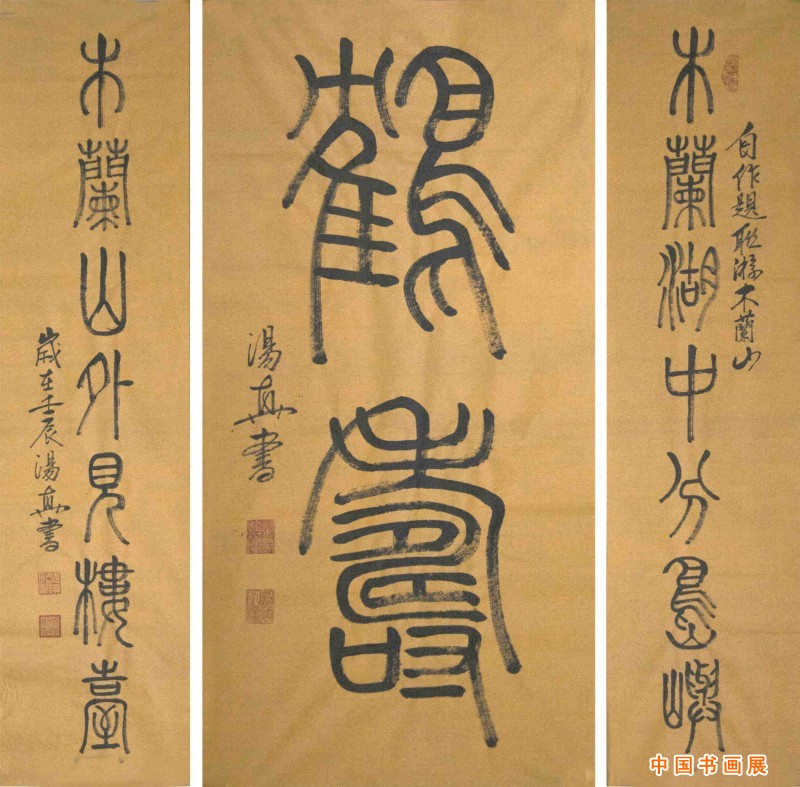 自作題聯游木蘭山
木蘭湖中分島嶼
鶴壽
湯真書
木蘭山外見樓臺
歲在壬辰湯真書
中国书画展